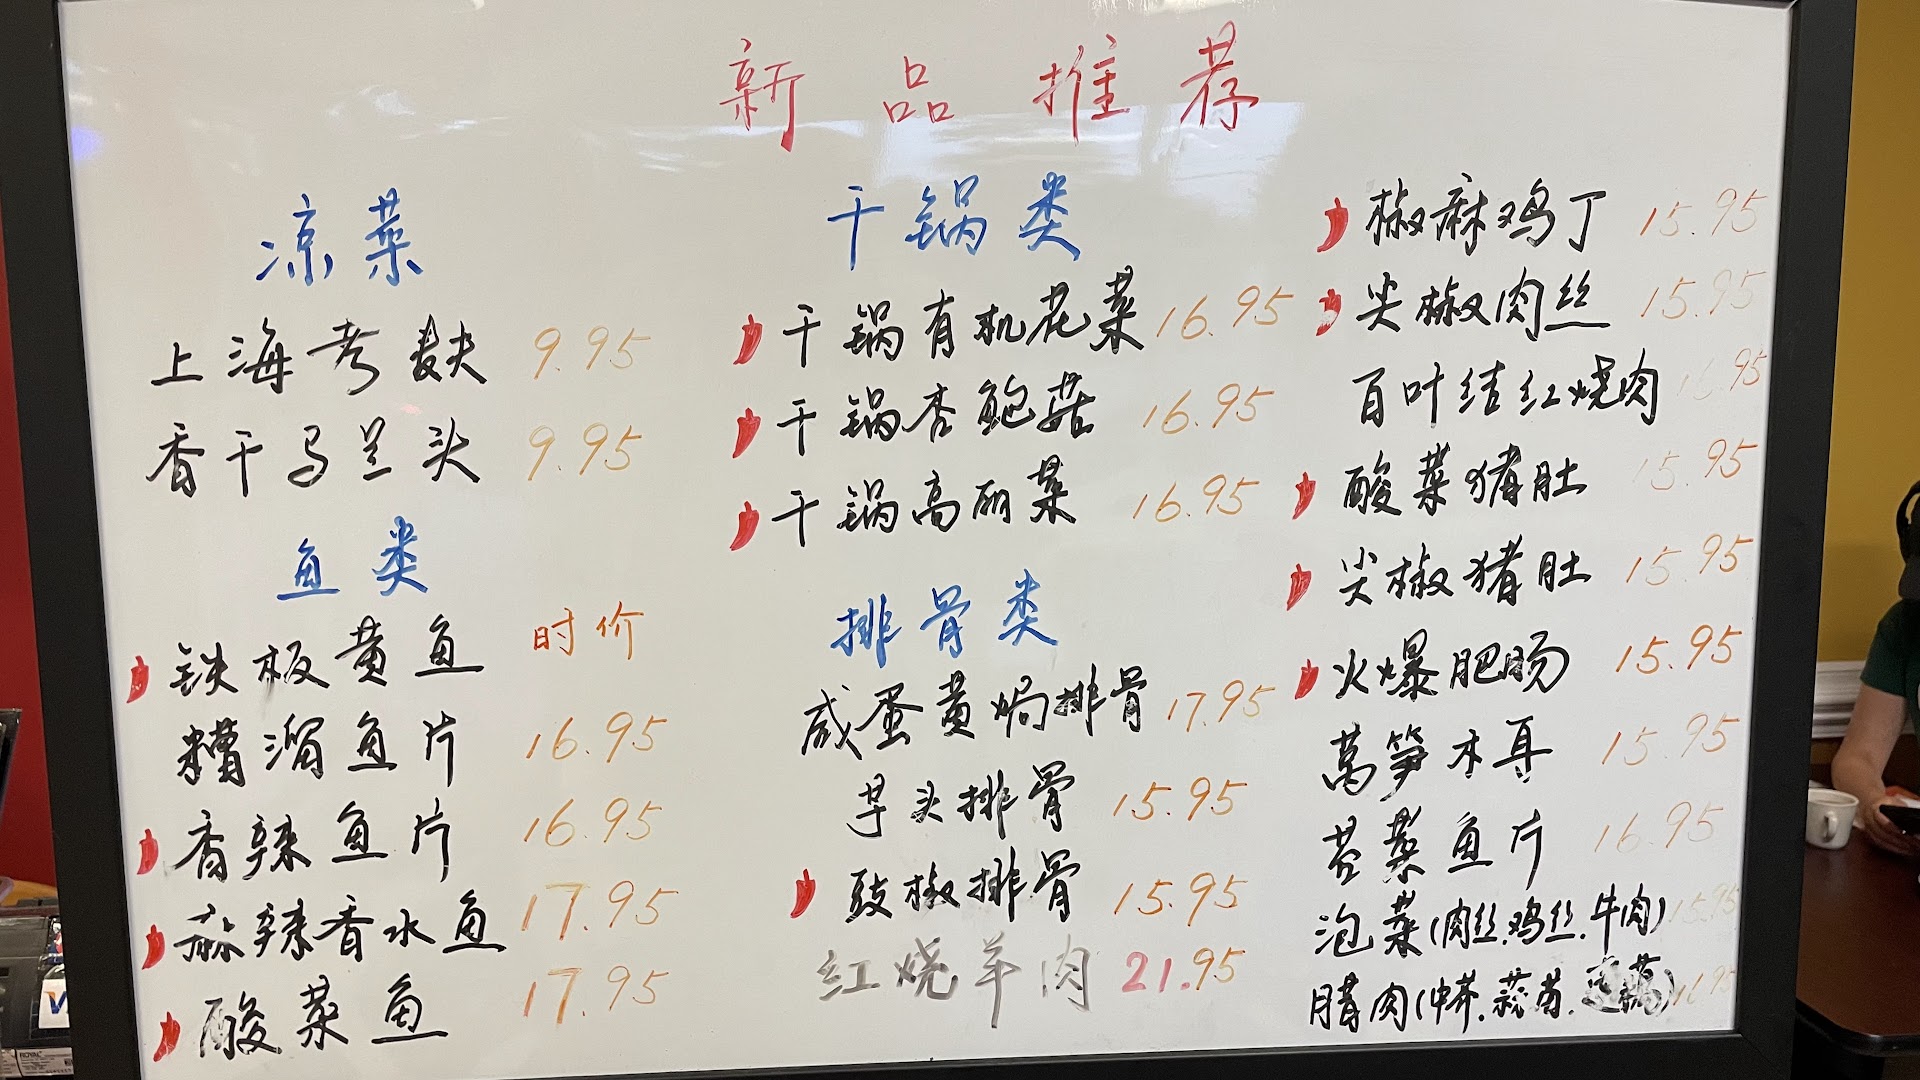 新品推荐
凉菜
上海考麸 9.95
香干马兰头 9.95
鱼类
铁板黄鱼 时价
糟溜鱼片 16.95
香辣鱼片 16.95
麻辣香水鱼 17.95
酸菜鱼 17.95
干锅类
干锅有机花菜 16.95
干锅杏鲍菇 16.95
干锅高丽菜 16.95
排骨类
咸蛋黄焗排骨 17.95
芋头排骨 15.95
豉椒排骨 15.95
红烧羊肉 21.95
椒麻鸡丁 15.95
尖椒肉丝 15.95
百叶结红烧肉 16.95
酸菜猪肚 15.95
尖椒猪肚 15.95
火爆肥肠 15.95
莴笋木耳 15.95
苔菜鱼片 16.95
泡菜(肉丝.鸡丝.牛肉) 15.95
腊肉( 16.95